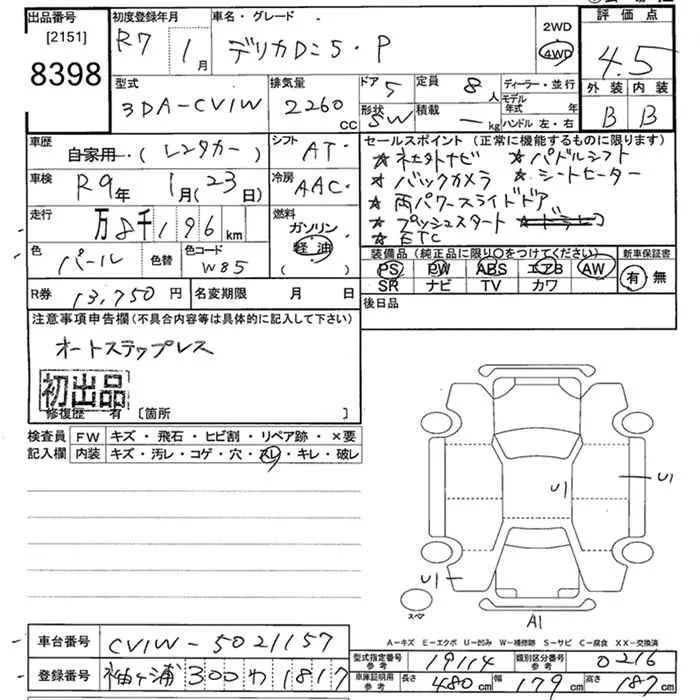 出品番号 初度登録年月 車名・グレード 2WD 評価点
[2151] R7年 1月 デリカD:5・P 4WD 4.5
8398
型式 排気量 ドア 5 定員 8人 ディーラー・並行 外装 内装
3DA-CV1W 2260cc 形状 SW 積載 ーkg モデル年式 年 B B
ハンドル 左・右
車歴 自家用・(レンタカー) シフト AT・ セールスポイント(正常に機能するものに限ります)
☆社外ナビ ☆パドルシフト
車検 R9年 1月(23日) 冷房 AAC・ ☆バックカメラ ☆シートヒーター
☆両パワースライドドア
走行 万8千196km 燃料 ガソリン 軽油 ( ) ☆プッシュスタート
☆ETC
色 パール 色替 色コード W85 装備品(純正品に限り○をつけてください) 新車保証書
PS PW ABS エアB AW 有 無
R券 13,750円 名変期限 月 日 SR ナビ TV カワ
注意事項申告欄(不具合内容等は具体的に記入して下さい) 後日品
オートステップレス
初出品
修復歴 有 [箇所 ]
検査員 FW キズ・飛石・ヒビ割・リペア跡・×要
記入欄 内装 キズ・汚レ・コゲ・穴・スレ・キレ・破レ
U1
U1
U1
スペア
A1
A-キズ E-エクボ U-凹み W-補修跡 S-サビ C-腐食 XX-交換済
車台番号 CV1W-5021157
型式指定番号 参考 19114 類別区分番号 参考 0216
登録番号 袖ヶ浦 300 わ 1817
車庫証明用 参考 長さ 480cm 幅 179cm 高さ 187cm